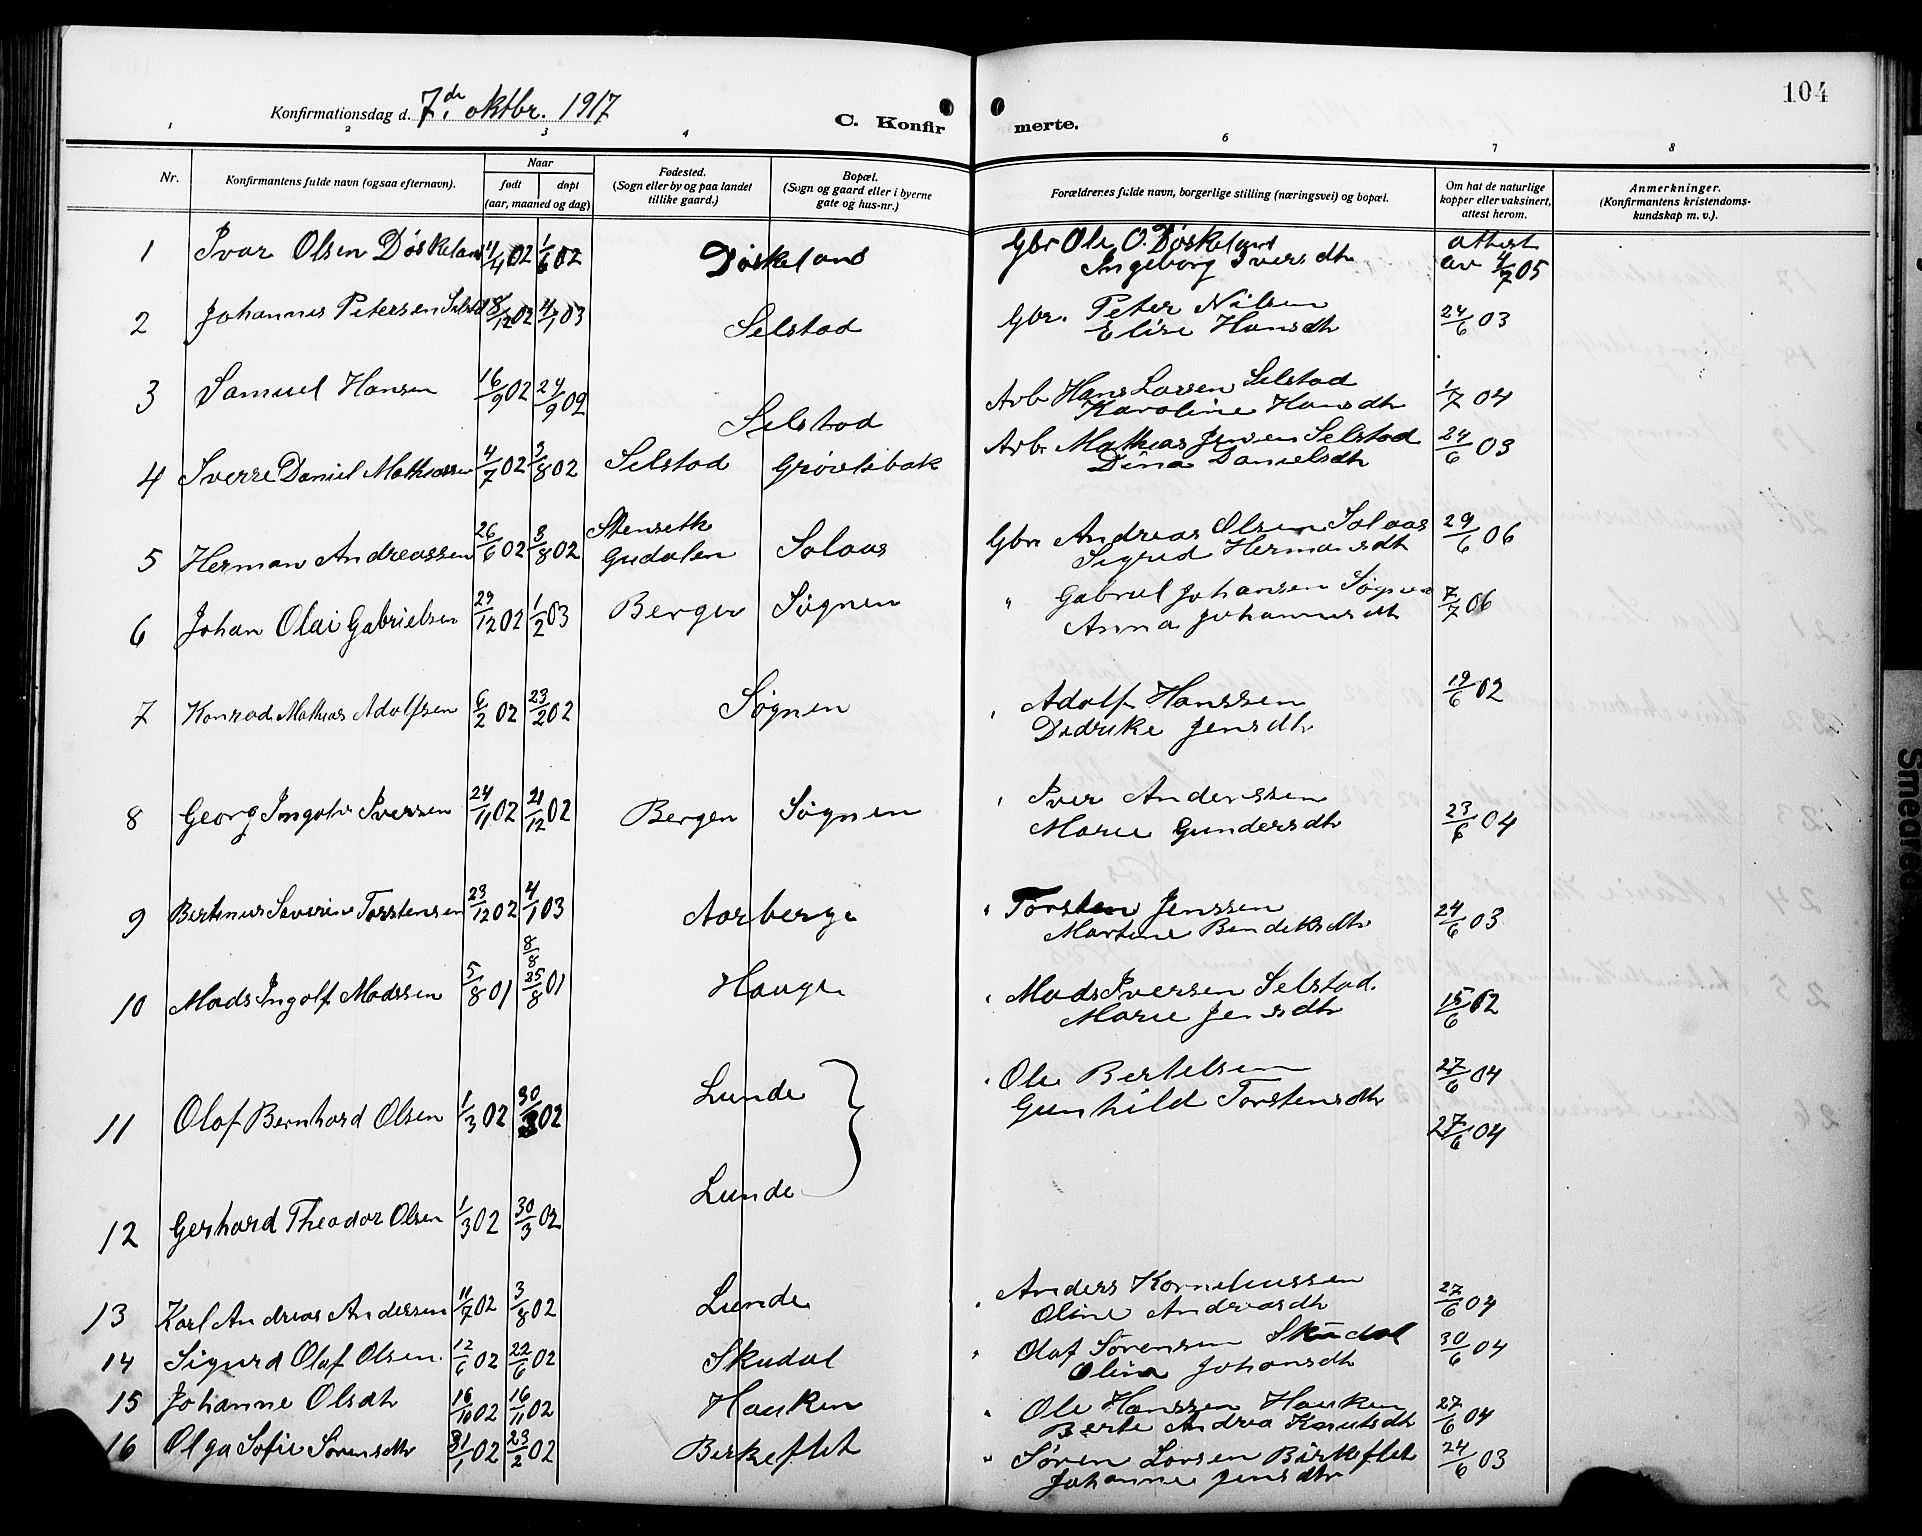 104
Konfirmationsdag d. 7de oktbr. 1917
C. Konfirmerte.
1 2 3 4 6 7 8
Nr.
Konfirmantens fulde navn (ogsaa efternavn).
Naar
født døpt
(aar, maaned og dag)
Fødested.
(Sogn eller by og paa landet
tillike gaard.)
Bopæl.
(Sogn og gaard eller i byerne
gate og hus-nr.)
Forældrenes fulde navn, borgerlige stilling (næringsvei) og bopæl.
Om hat de naturlige
kopper eller vaksinert,
attest herom.
Anmerkninger.
(Konfirmantens kristendoms-
kundskap m. v.).
1 Ivar Olsen Døskeland 11/4 02 1/6 02 Døskeland Gbr Ole O. Døskeland attest
Ingeborg Iversdtr av 4/7 05
2 Johannes Petersen Selstad 18/12 02 4/1 03 Selstad Gbr. Peter Nilsen 24/6 03
Elise Hansdtr
3 Samuel Hansen 16/9 02 24/9 02 Selstad Arb Hans Larsen Selstad 1/7 04
Karoline Hansdtr
4 Sverre Daniel Mathiassen 4/7 02 3/8 02 Selstad Grøvlebak Arb. Mathias Jensen Selstad 24/6 03
Dina Danielsdtr
5 Herman Andreassen 26/6 02 3/8 02 Stenseth Gudalen Solaas Gbr Andreas Olsen Solaas 29/6 06
Sigrid Hermansdtr
6 Johan Olai Gabrielsen 29/12 02 1/2 03 Berge Søgnen " Gabriel Johansen Søgnen 7/7 06
Anna Johannesdtr
7 Konrad Mathias Adolfsen 6/2 02 23/2 02 Søgnen " Adolf Hanssen 19/6 02
Didrike Jensdtr
8 Georg Ingolv Iversen 24/11 02 21/12 02 Bergen Søgnen " Iver Anderssen 23/6 04
Marie Gundersdtr
9 Bertinus Severin Torstensen 23/12 02 4/1 03 Aarberge " Torsten Jenssen 24/6 03
Martine Bendiksdtr
10 Mads Ingolf Madssen 5/8 01 8/8 25/8 01 Hauge " Mads Iversen Selstad. 15/6 02
Marie Jensdtr
11 Olaf Bernhard Olsen 1/3 02 30/3 02 Lunde " Ole Bertelsen 27/6 04
Gunhild Torstensdtr
27/6 04
12 Gerhard Theodor Olsen 1/3 02 30/3 02 Lunde
13 Karl Andreas Andersen 11/7 02 3/8 02 Lunde " Anders Korneliussen 27/6 04
Oline Andreasdtr
14 Sigurd Olaf Olsen. 12/6 02 22/6 02 Skudal " Olaf Sørensen Skudal 30/6 04
Olina Johansdtr
15 Johanne Olsdtr 16/10 02 16/11 02 Hauken " Ole Hanssen Hauken 27/6 04
Berte Andrea Knutsdtr
16 Olga Sofie Sørensdtr 31/1 02 23/2 02 Birkeflet " Søren Larsen Birkeflet 24/6 03
Johanne Jensdtr
Smeared